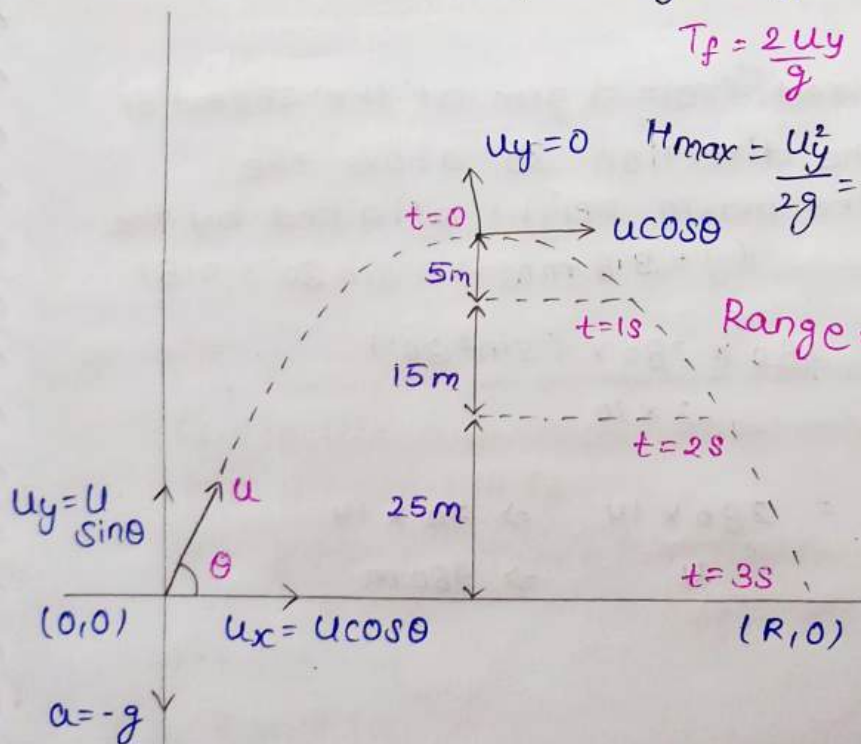 Tf = 2uy/g
uy=0
Hmax = uy²/2g =
t=0
ucosθ
5m
t=1s
Range=
15m
t=2s
uy=u sinθ
u
25m
θ
t=3s
(0,0)
ux= ucosθ
(R,0)
a=-g